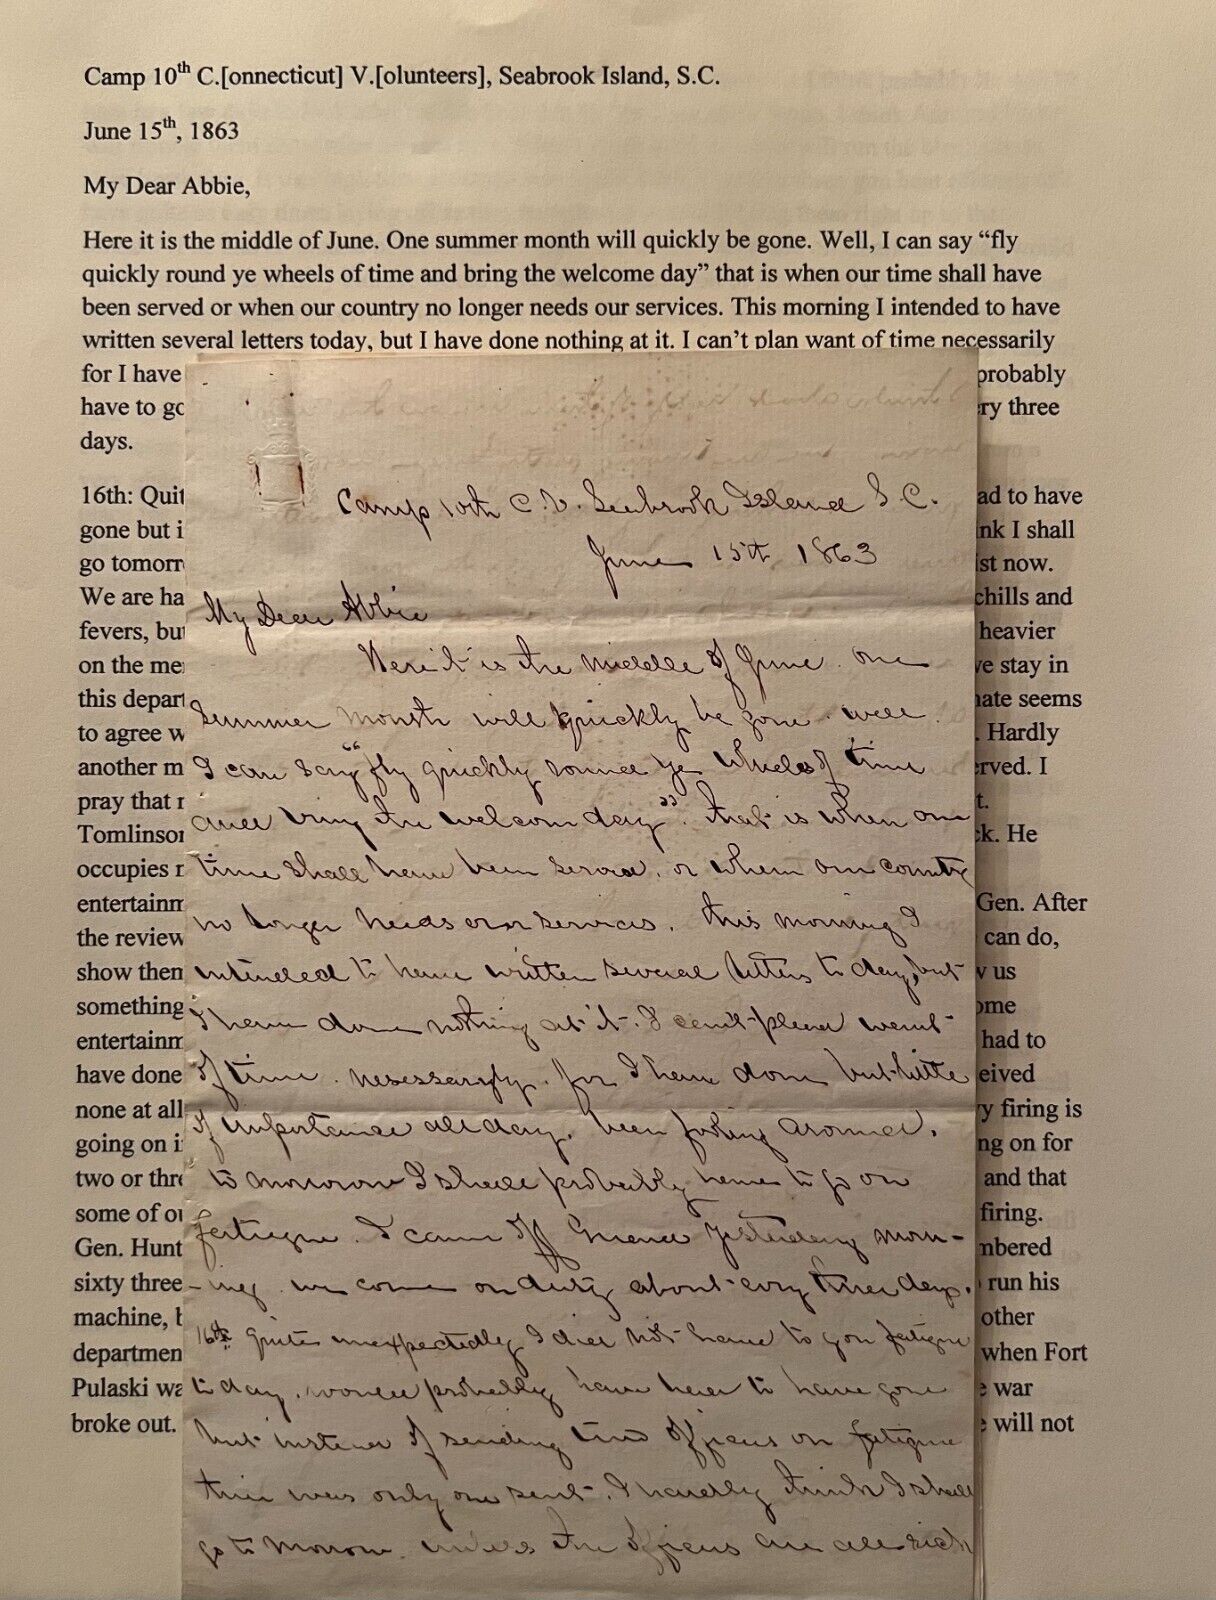 Camp 10th C.[onnecticut] V.[olunteers], Seabrook Island, S.C.
June 15th, 1863
My Dear Abbie,
Here it is the middle of June. One summer month will quickly be gone. Well, I can say “fly
quickly round ye wheels of time and bring the welcome day” that is when our time shall have
been served or when our country no longer needs our services. This morning I intended to have
written several letters today, but I have done nothing at it. I can’t plan want of time necessarily
for I have probably
have to go three
days.
16th: ad to have
gone but i nk I shall
go st now.
We are chills and
fevers, heavier
on the stay in
this seems
to agree Hardly
another I
pray that
Tomlinson He
occupies
Gen. After
the review can do,
show us
something

have done had to
none at all firing is
going on on for
two or and that
some of firing.
Gen. Hunt
sixty three run his
machine, other
when Fort
Pulaski war
broke out. will not
Camp 10th C. V. Seabrook Island S. C.
June 15th 1863
My Dear Abbie
Here it is the middle of June. one
summer month will quickly be gone. well
I can say “fly quickly round ye wheels of time
and bring the welcom day”. that is when our
time shall have been served, or when our country
no longer needs our services. this morning I
intended to have written several letters to day, but
I have done nothing at it. I can't plead want
of time necessarily, for I have done but little
of importance all day, been fooling around.
to morrow I shall probably have to go on
fatigue. I came off Guard yesterday morn-
-ing. we come on duty about evry three days.
16th Quite unexpectedly I did not have to go on fatigue
to day. would probably have had to have gone
but instead of sending two officers on fatigue
there was only one sent. I hardly think I shall
go to morrow unless the officers are all sick